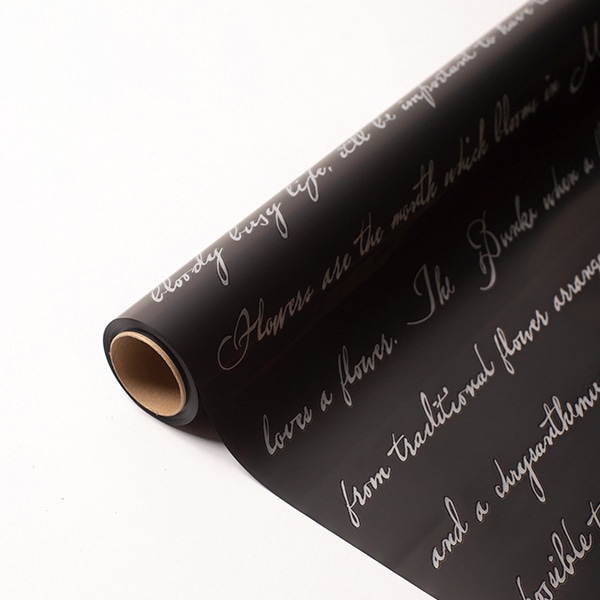 bloody busy life, it'll be important to have
Flowers are the month which blooms in M
loves a flower. The Bunka when a
from traditional flower arrange
and a chrysanthemu
possible t